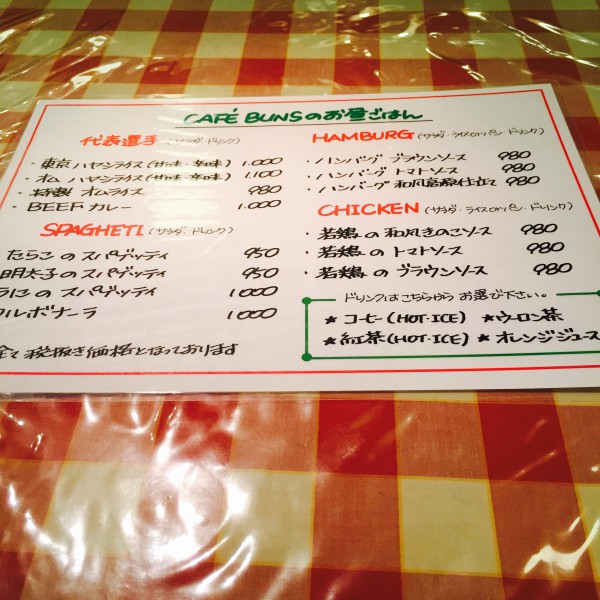 CAFÉ BUNSのお昼ごはん
代表選手 (サラダ・ドリンク)
・東京 ハヤシライス (甘味・辛味) 1.000
・オム ハヤシライス (甘味・辛味) 1.100
・特製 オムライス 980
・BEEF カレー 1.000
SPAGHETI (サラダ・ドリンク)
たらこ の スパゲッティ 950
明太子 の スパゲッティ 950
うに の スパゲッティ 1000
カルボナーラ 1000
全て 税抜き価格となっております
HAMBURG (サラダ・ライスorパン・ドリンク)
・ハンバーグ ブラウンソース 980
・ハンバーグ トマトソース 980
・ハンバーグ 和風 仕立て 980
CHICKEN (サラダ・ライスorパン・ドリンク)
・若鶏 の 和風きのこソース 980
・若鶏 の トマトソース 980
・若鶏 の ブラウンソース 980
ドリンクはこちらから お選び下さい。
★コーヒー(HOT・ICE) ★ウーロン茶
★紅茶(HOT・ICE) ★オレンジジュース